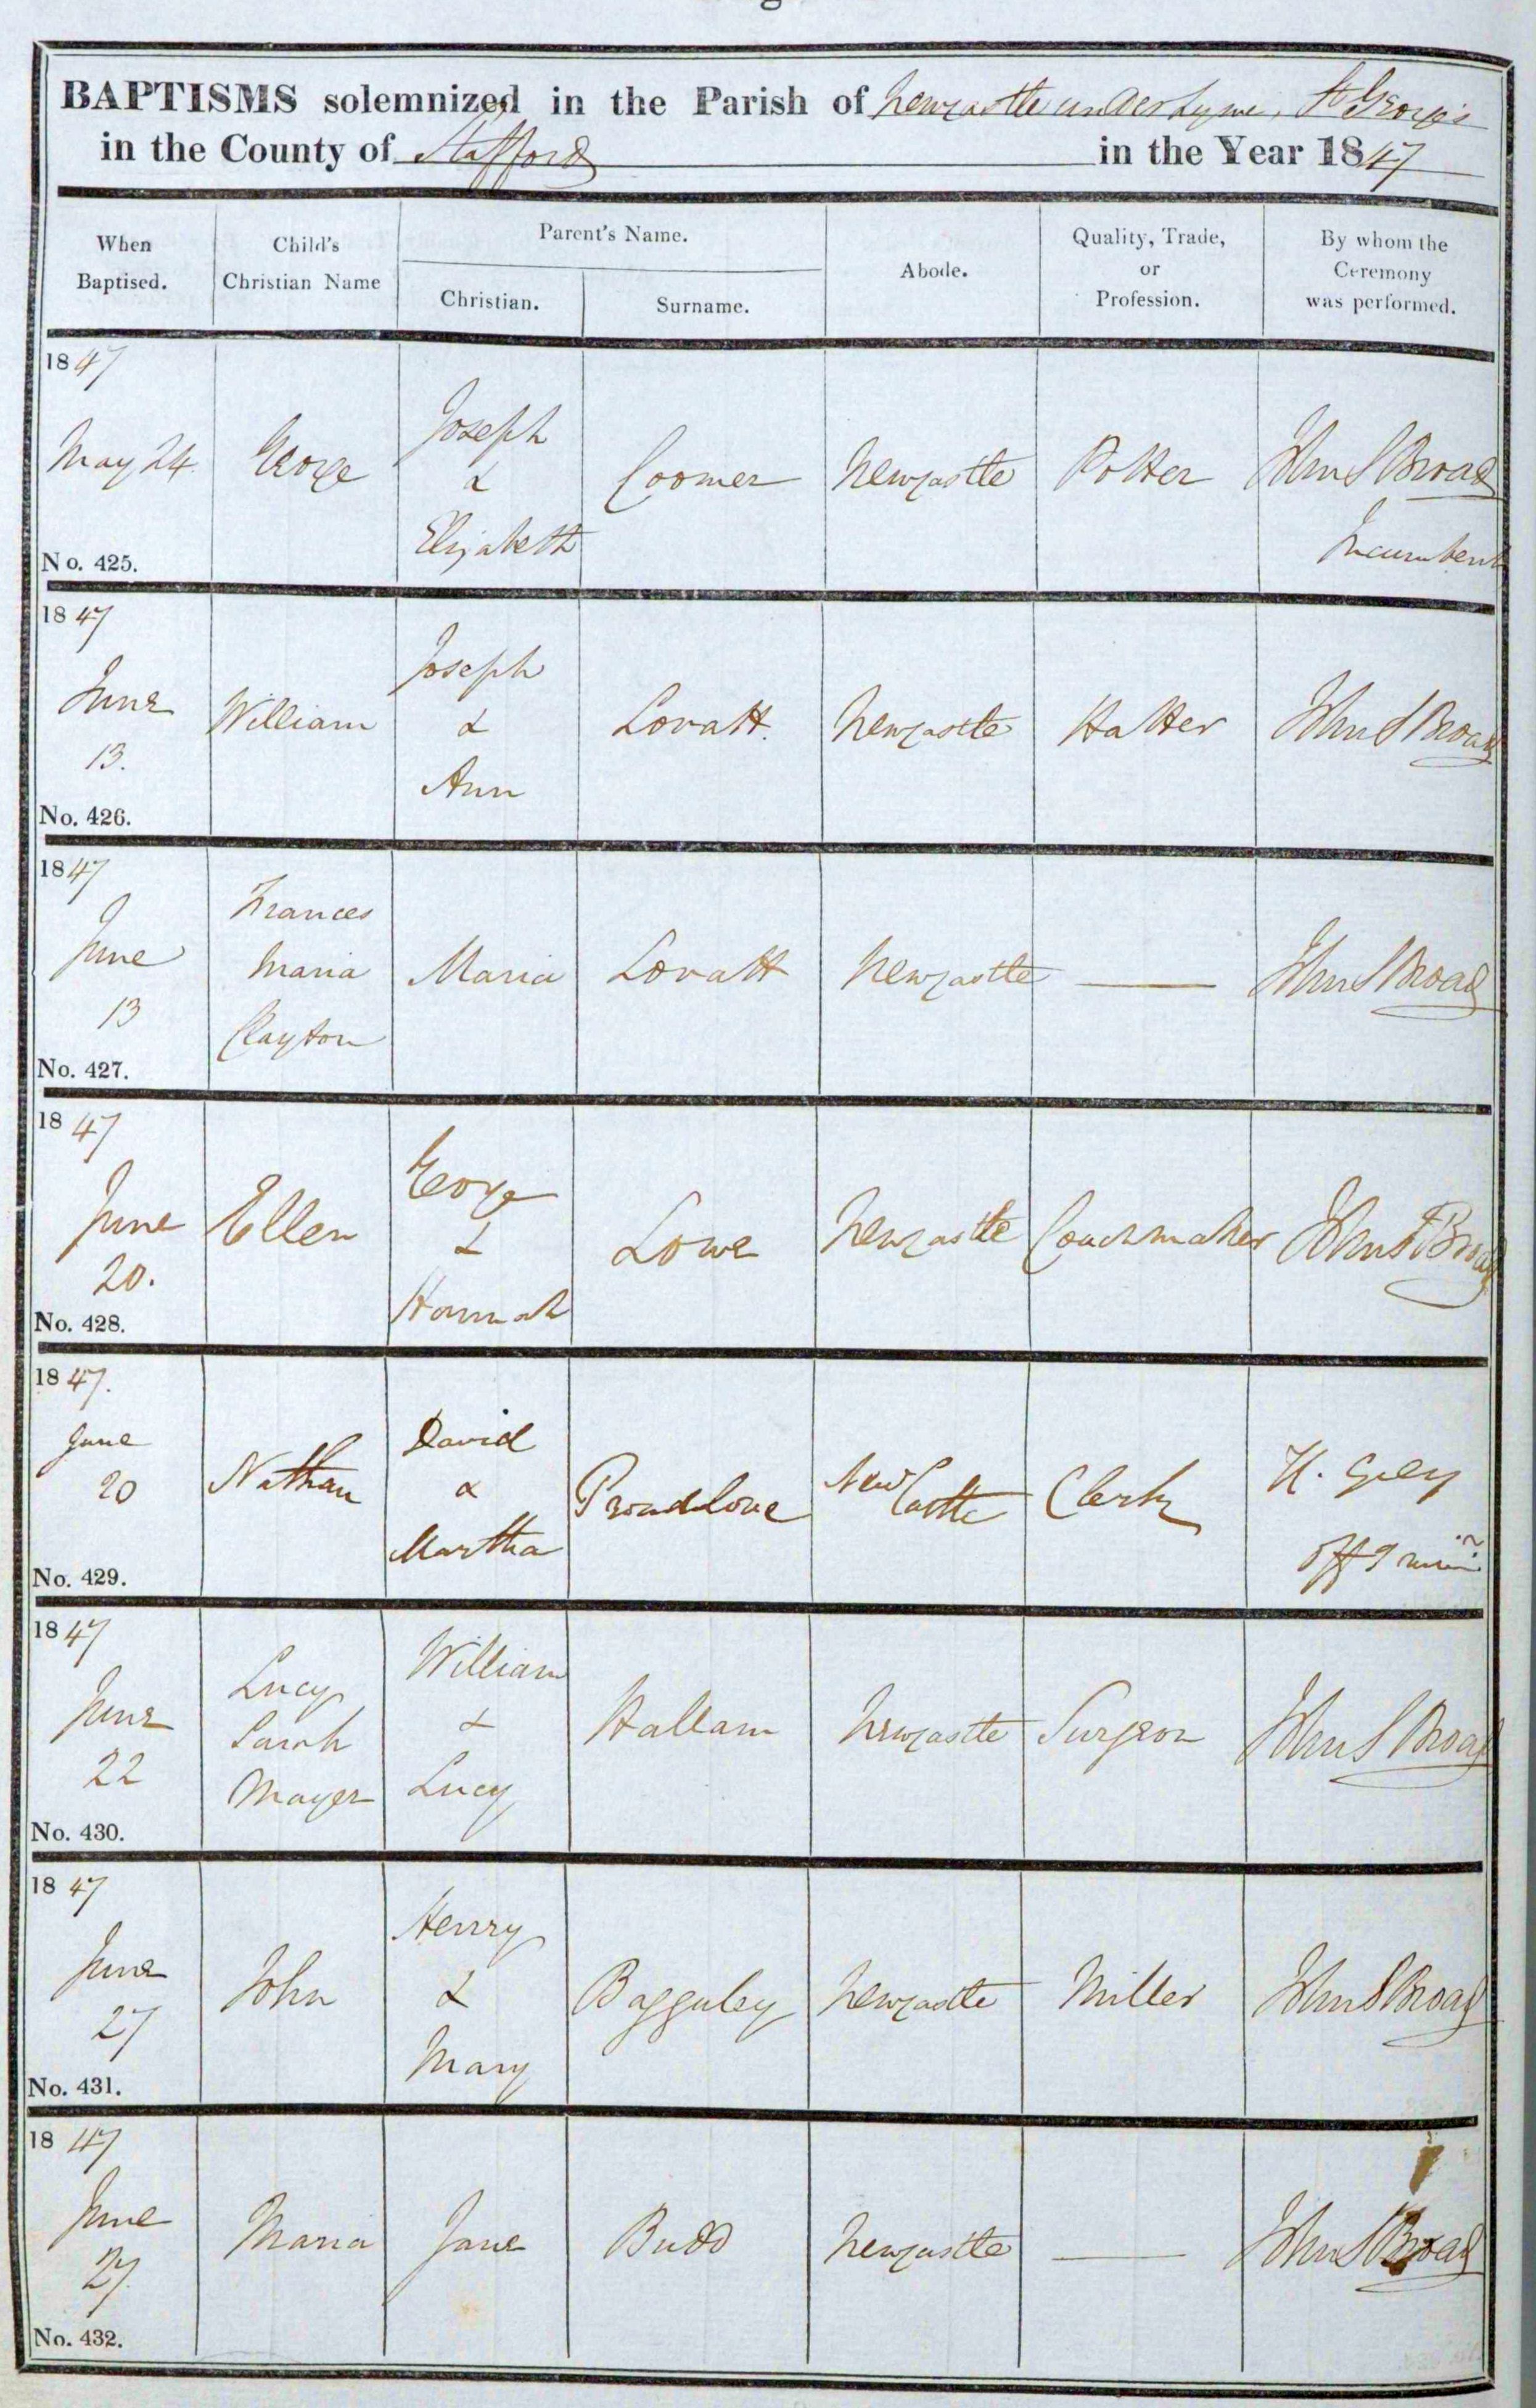 BAPTISMS solemnized in the Parish of Newcastle under Lyme, St George's
in the County of Stafford in the Year 1847
When Baptised. Child's Christian Name Parent's Name. Christian. Surname. Abode. Quality, Trade, or Profession. By whom the Ceremony was performed.
1847
May 24. George Joseph & Elizabeth Coomer Newcastle Potter John S Broad Incumbent
No. 425.
1847
June 13. William Joseph & Ann Lovatt. Newcastle Hatter John S Broad
No. 426.
1847
June 13 Frances Maria Clayton Maria Lovatt Newcastle John S Broad
No. 427.
1847
June 20. Ellen George & Hannah Lowe Newcastle Coachmaker John S Broad
No. 428.
1847.
June 20 Nathan David & Martha Proudlove New Castle Clerk H. Grey Offg Min
No. 429.
1847
June 22 Lucy Sarah Mayer William & Lucy Hallam Newcastle Surgeon John S Broad
No. 430.
1847
June 27 John Henry & Mary Bagguley Newcastle Miller John S Broad
No. 431.
1847
June 27 Maria Jane Budd Newcastle John S Broad
No. 432.